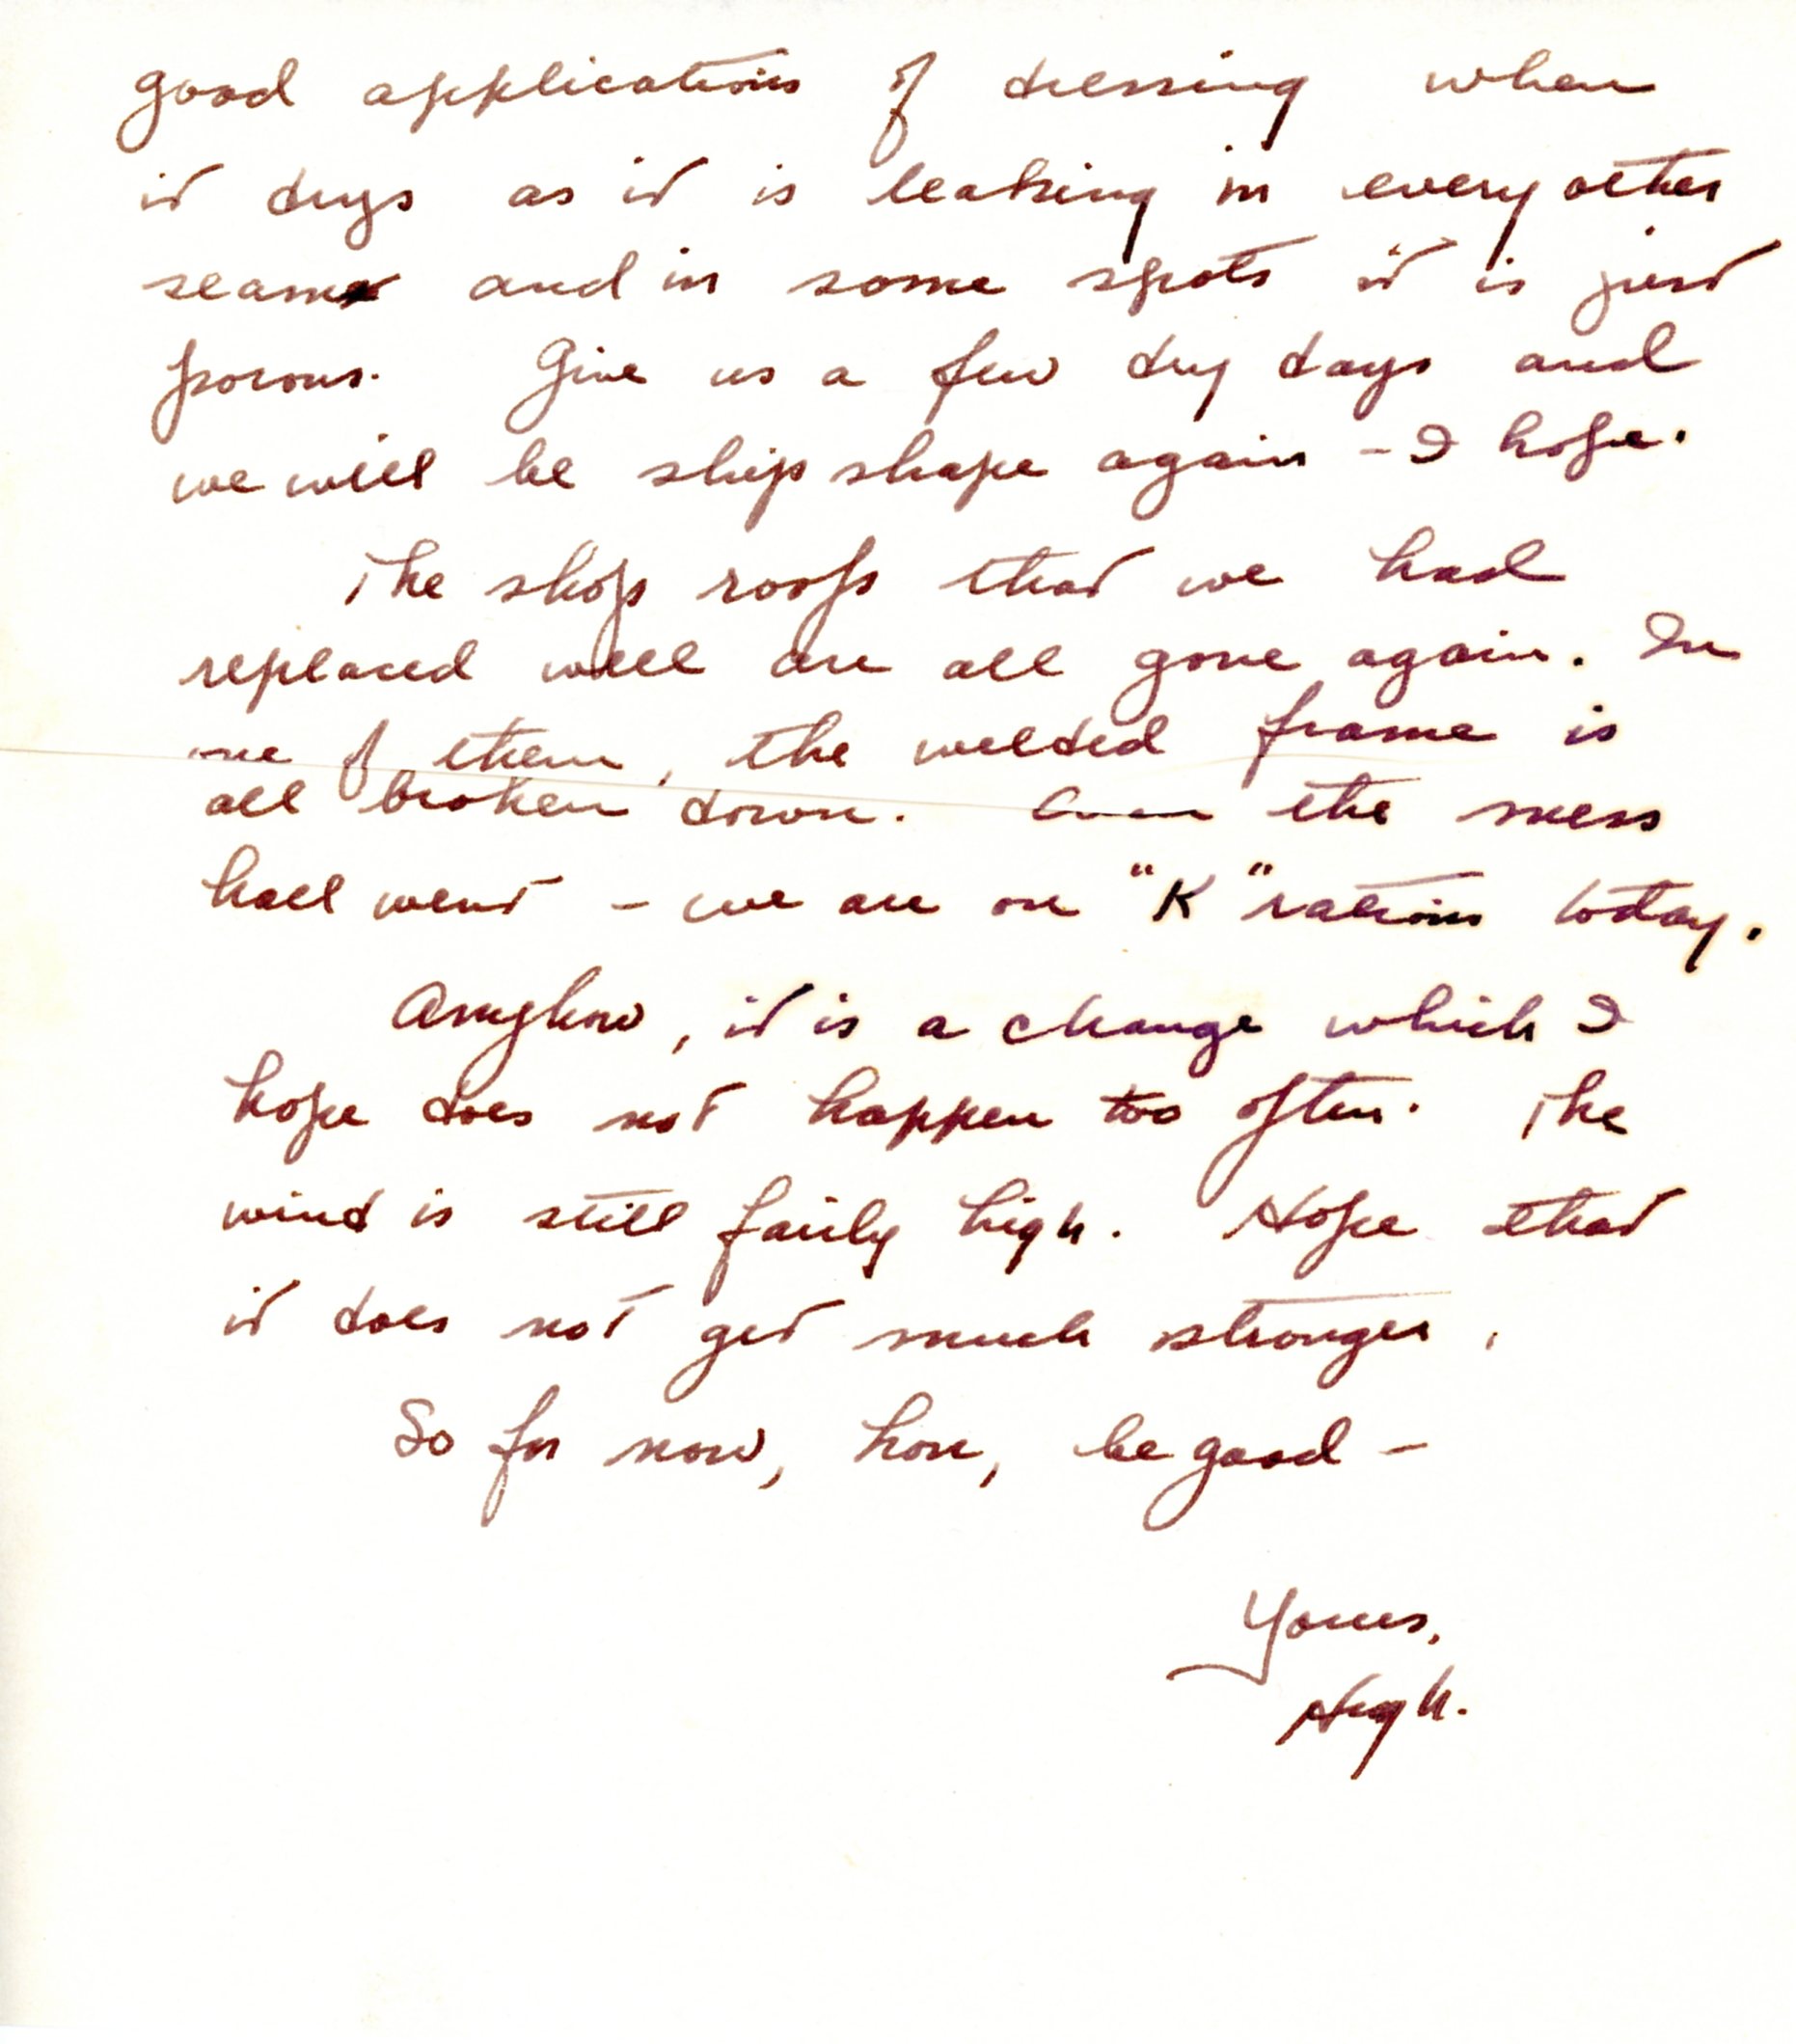 good applications of dressing when
it drys as it is leaking in every other
seam and in some spots it is just
porous. Give us a few dry days and
we will be ship shape again - I hope.
The shop roofs that we had
replaced well are all gone again. In
one of them, the welded frame is
all broken down. Even the mess
hall went - we are on "K" rations today.
Anyhow, it is a change which I
hope does not happen too often. The
wind is still fairly high. Hope that
it does not get much stronger.
So for now, hon, be good -
Yours,
Hugh.